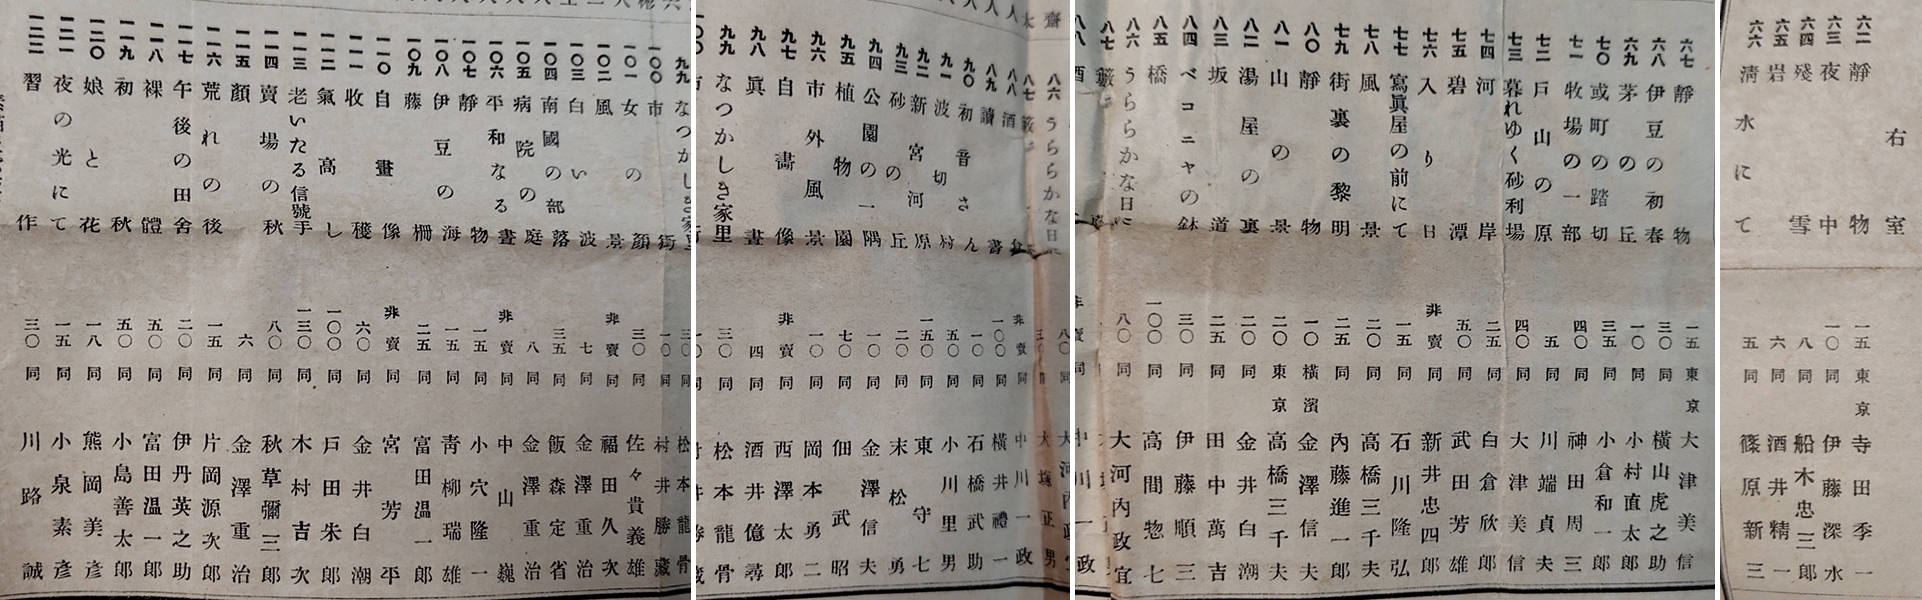 右室
六二 靜物 一五 東京 寺田季一
六三 夜中 一〇 同 伊藤深水
六四 殘雪 八 同 船木忠三郎
六五 岩 六 同 酒井精一
六六 淸水にて 五 同 篠原新三
六七 靜物 一五 東京 大津美信
六八 伊豆の初春 三〇 同 橫山虎之助
六九 茅の丘 一〇 同 小村直太郎
七〇 或町の踏切 三五 同 小倉和一郎
七一 牧場の一部 四〇 同 神田周三
七二 戸山の原 五 同 川端貞夫
七三 暮れゆく砂利場 四〇 同 大津美信
七四 河岸 二五 同 白倉欣郎
七五 碧潭 五〇 同 武田芳雄
七六 入り日 非賣 同 新井忠四郎
七七 寫眞屋の前にて 一五 同 石川隆弘
七八 風景 二〇 同 高橋三千夫
七九 街裏の黎明 五〇 同 內藤進一郎
八〇 靜物 一〇 橫濱 金澤信夫
八一 山の景 二〇 東京 高橋三千夫
八二 湯屋の裏 二〇 同 金井白潮
八三 坂道 二五 同 田中萬吉
八四 ベコニヤの鉢 三〇 同 伊藤順三
八五 橋 一〇〇 同 高間惣七
八六 うららかな日に 八〇 同 大河內政宜
八八 酒倉 非賣 同 中川一政
八九 讀書 一〇〇 同 橫井禮一
九〇 初音さん 一〇 同 石橋武助
九一 波切村 五〇 同 小川里男
九二 新宮河原 一五〇 同 東守七
九三 砂の丘 二〇 同 末松勇
九四 公園の一隅 一〇 同 金澤信夫
九五 植物園 七〇 同 佃武昭
九六 市外風景 一〇 同 岡本勇二
九七 自畵像 非賣 同 西澤太郎
九八 眞晝 四 同 酒井億尋
九九 なつかしき家里 三〇 同 松本龍骨
一〇〇 市街 一〇 同 村井勝藏
一〇一 女の顏 三〇 同 佐々貴義雄
一〇二 風景 非賣 同 福田久次
一〇三 白い波 七 同 金澤重治
一〇四 南國の部落 三五 同 飯森定省
一〇五 病院の庭 八 同 金澤重治
一〇六 平和なる晝 非賣 同 中山巍
一〇七 靜物 一五 同 小穴隆一
一〇八 伊豆の海 一五 同 靑柳瑞雄
一〇九 藤柵 二五 同 富田溫一郎
一一〇 自畫像 非賣 同 宮芳平
一一一 收穫 六〇 同 金井白潮
一一二 氣高し 一〇〇 同 戸田朱郎
一一三 老いたる信號手 一三〇 同 木村吉次
一一四 賣場の秋 八〇 同 秋草彌三郎
一一五 顏 六 同 金澤重治
一一六 荒れの後 一五 同 片岡源次郎
一一七 午後の田舍 二〇 同 伊丹英之助
一一八 裸體 五〇 同 富田溫一郎
一一九 初秋 五〇 同 小島善太郎
一二〇 娘と花 一八 同 熊岡美彥
一二一 夜の光にて 一五 同 小泉素彥
一二二 習作 三〇 同 川路誠